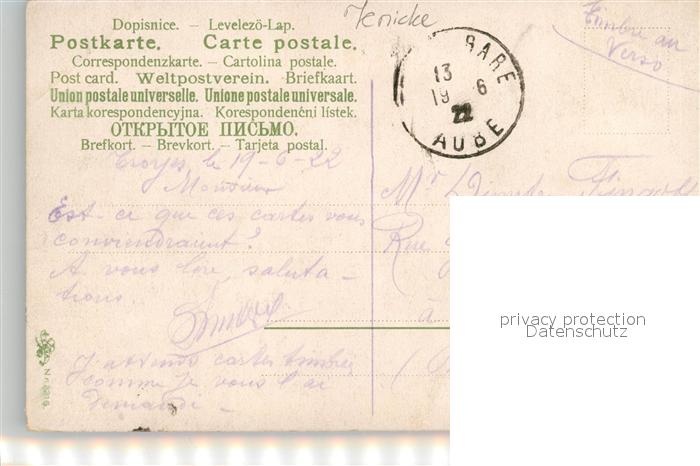 Dopisnice. – Levelező-Lap.
Postkarte. Carte postale.
Correspondenzkarte. – Cartolina postale.
Post card. Weltpostverein. Briefkaart.
Union postale universelle. Unione postale universale.
Karta korespondencyjna. Korespondenční lístek.
ОТКРЫТОЕ ПИСЬМО.
Brefkort. – Brevkort. – Tarjeta postal.
Jenicke
Timbre au
Verso
GARE
13
19 6
22
AUBE
Troyes, le 19-6-22
Monsieur
Est-ce que ces cartes vous
conviendraient?
A vous lire, saluta–
tions.
J'attends cartes timbrées
comme je vous l'ai
demandé –
Mr
Rue
à
privacy protection
Datenschutz